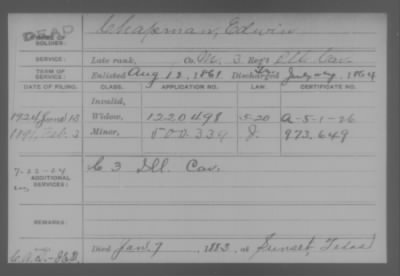 DEAD
NAME OF SOLDIER: Chapman, Edwin
SERVICE: Late rank, Co. M. 3 Reg't Ill. Cav.
TERM OF SERVICE: Enlisted Aug 12, 1861 Discharged
DATE OF FILING. CLASS. APPLICATION NO. LAW. CERTIFICATE NO.
Invalid,
1924 June 18 Widow, 1220498 5-20 A-5-1-26
1891, Feb. 2 Minor, 500.339 J. 973.649
ADDITIONAL SERVICES: C 3 Ill. Cav.
REMARKS:
Died Jan. 7, 1883, at Sunset, Texas